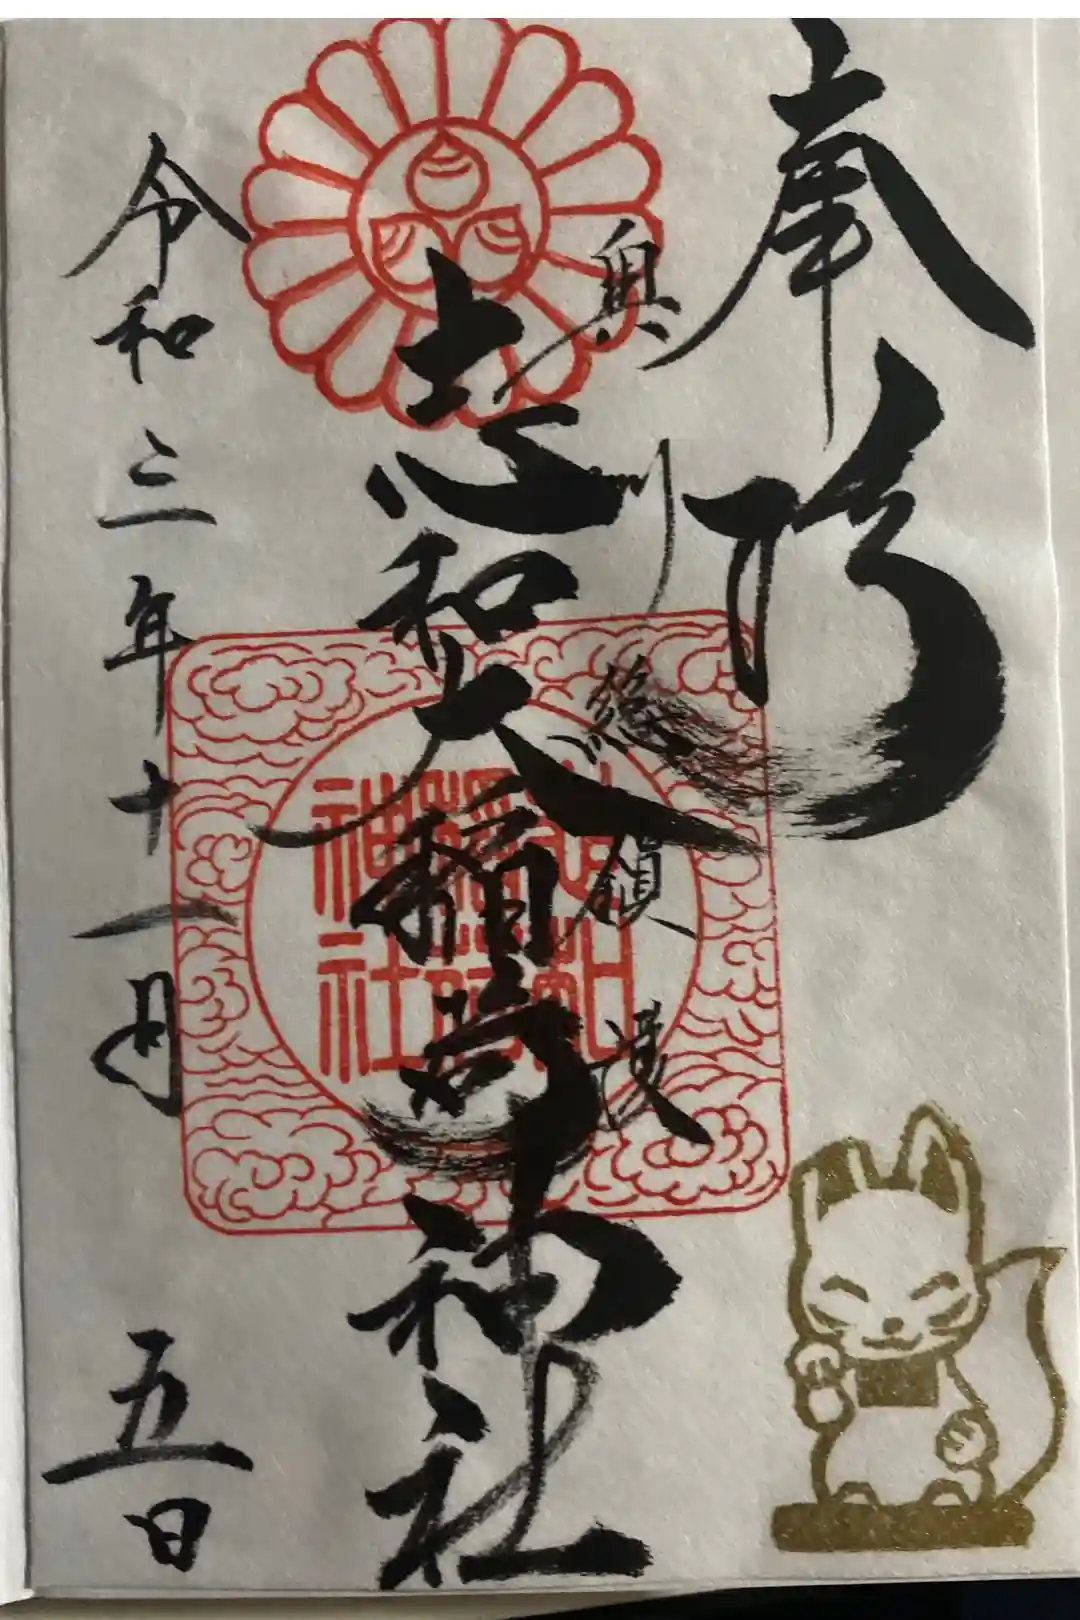 奉拝
奥州総鎮護
志和大稲荷神社
志和
稲荷
神社
令和三年十一月五日